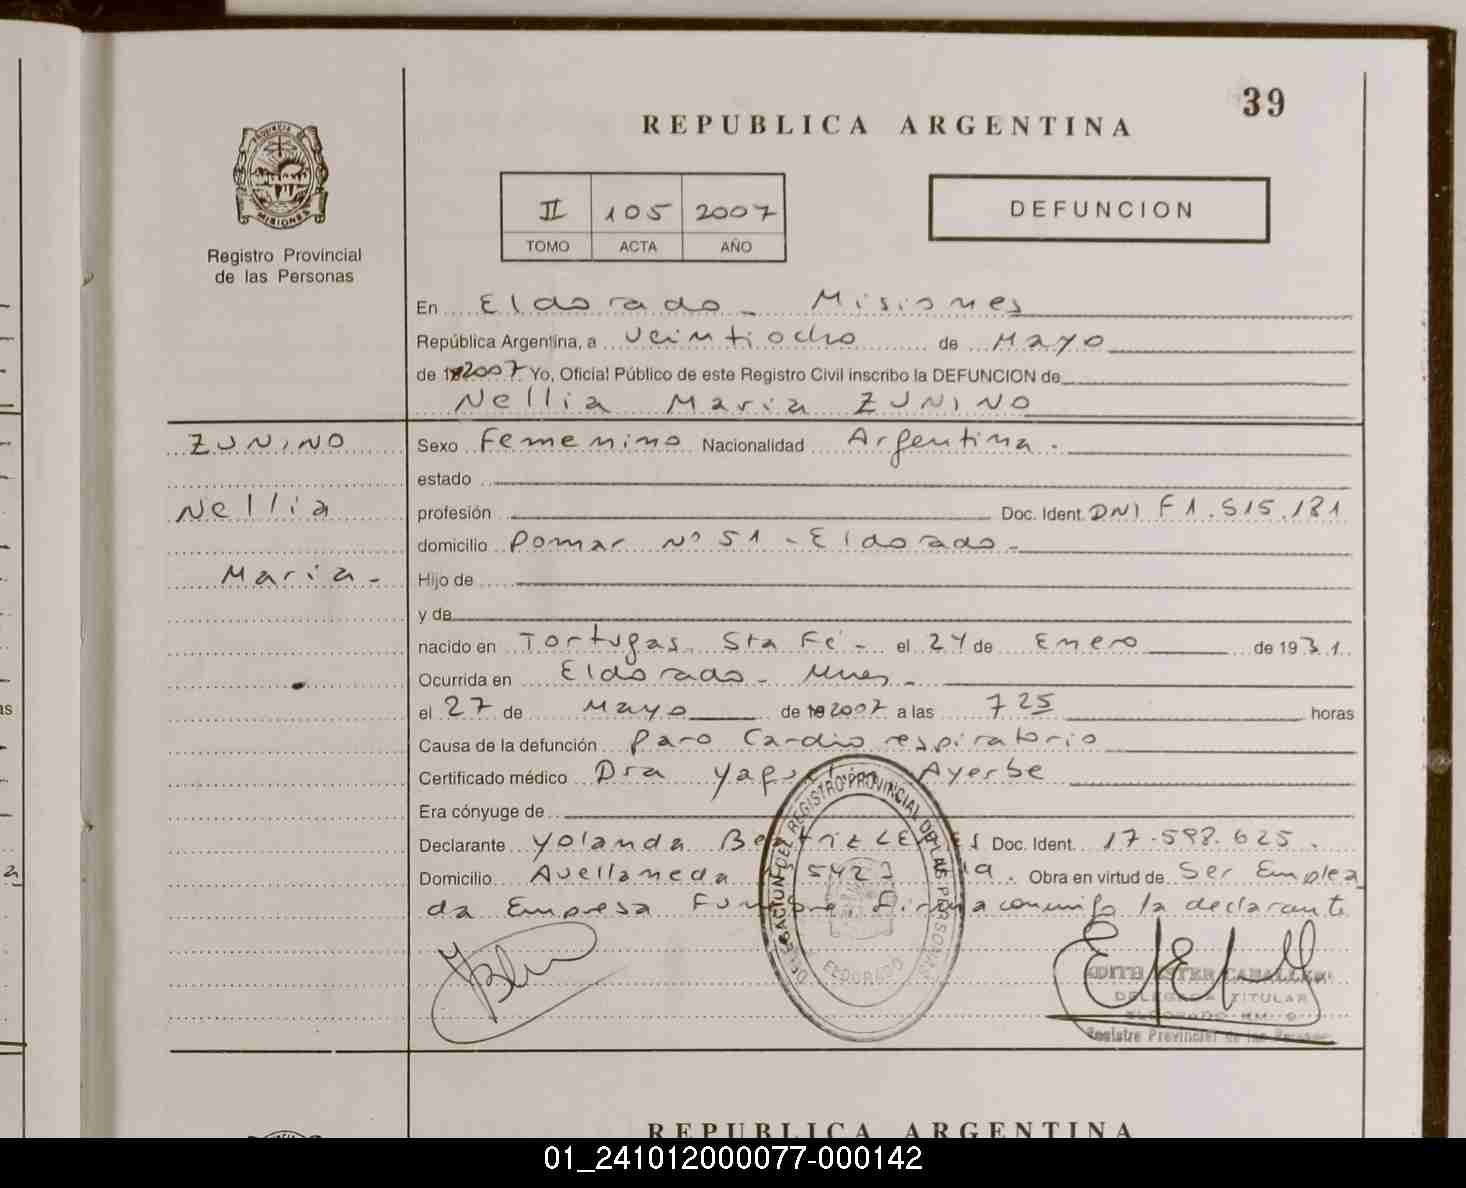 39
REPUBLICA ARGENTINA
PROVINCIA DE
MISIONES
Registro Provincial
de las Personas
II 105 2007
TOMO ACTA AÑO
DEFUNCION
En Eldorado - Misiones
República Argentina, a veintiocho de Mayo
de 2007 Yo, Oficial Público de este Registro Civil inscribo la DEFUNCION de
Nellia Maria ZUNINO
ZUNINO
Nellia
Maria -
Sexo Femenino Nacionalidad Argentina.
estado
profesión Doc. Ident. DNI F1.515.131
domicilio Pomar Nº 51 - Eldorado -
Hijo de
y de
nacido en Tortugas, Sta Fé - el 24 de Enero de 1931.
Ocurrida en Eldorado - Mnes -
el 27 de Mayo de 2007 a las 7 25 horas
Causa de la defunción Paro Cardio respiratorio
Certificado médico Dra Ayerbe
Era cónyuge de
Declarante Yolanda Doc. Ident. 17.598.625.
Domicilio Avellaneda 5427 Obra en virtud de Ser Emplea
da Empresa Funebre. Firma conmigo la declarante
DELEGACION DEL REGISTRO PROVINCIAL DE LAS PERSONAS
ELDORADO
EDITH ESTER CABALLERO
DELEGADA TITULAR
ELDORADO KM. 9
Registro Provincial de las Personas
REPUBLICA ARGENTINA
01_241012000077-000142